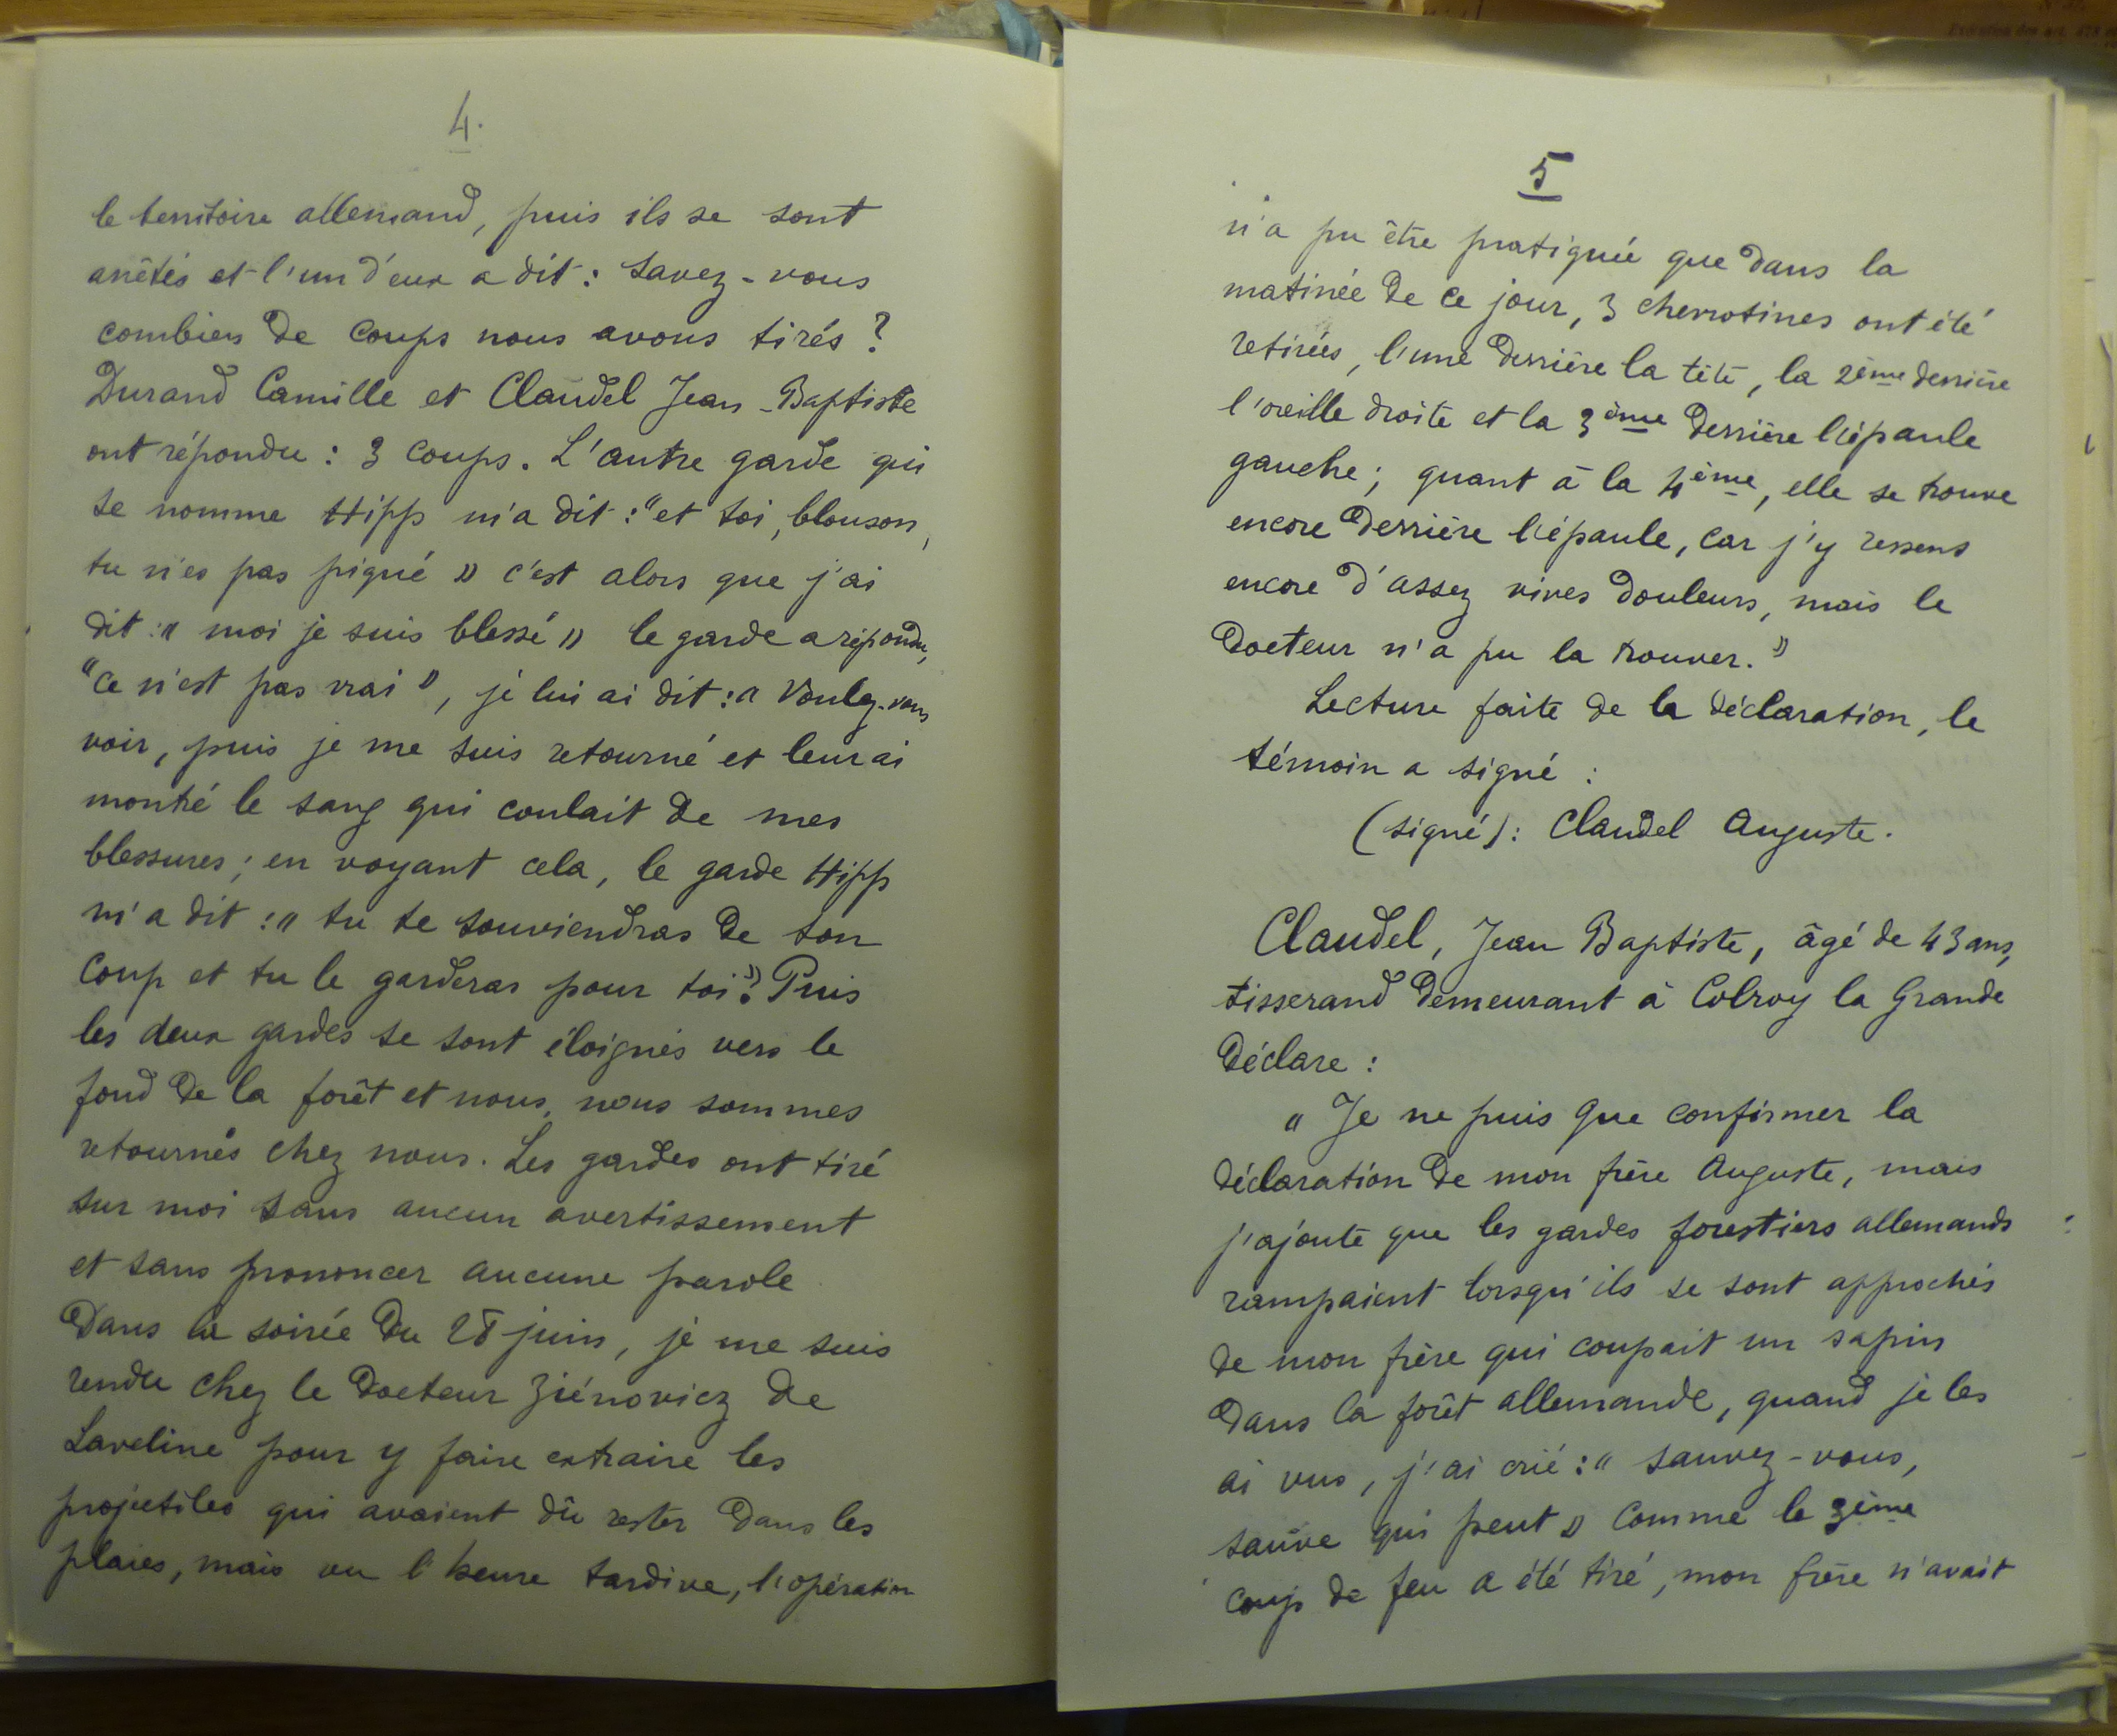 4.
le territoire allemand, puis ils se sont
arrêtés et l'un d'eux a dit : savez-vous
combien de coups nous avons tirés ?
Durand Camille et Claudel Jean-Baptiste
ont répondu : 3 coups. L'autre garde qui
se nomme Hipp m'a dit : "et toi, blouson,
tu n'es pas piqué » c'est alors que j'ai
dit : « moi je suis blessé » le garde a répondu,
"ce n'est pas vrai », je lui ai dit : « Voulez-vous
voir, puis je me suis retourné et leur ai
montré le sang qui coulait de mes
blessures ; en voyant cela, le garde Hipp
m'a dit : « tu te souviendras de ton
coup et tu le garderas pour toi ». Puis
les deux gardes se sont éloignés vers le
fond de la forêt et nous, nous sommes
retournés chez nous. Les gardes ont tiré
sur moi sans aucun avertissement
et sans prononcer aucune parole
Dans la soirée du 28 juin, je me suis
rendu chez le Docteur Ziénovicz de
Laveline pour y faire extraire les
projectiles qui avaient dû rester dans les
plaies, mais vu l'heure tardive, l'opération
5
n'a pu être pratiquée que dans la
matinée de ce jour, 3 chevrotines ont été
retirées, l'une derrière la tête, la 2ème derrière
l'oreille droite et la 3ème derrière l'épaule
gauche ; quant à la 4ème, elle se trouve
encore derrière l'épaule, car j'y ressens
encore d'assez vives douleurs, mais le
Docteur n'a pu la trouver. »
Lecture faite de la déclaration, le
témoin a signé :
(signé) : Claudel Auguste.
Claudel, Jean Baptiste, âgé de 43 ans,
tisserand demeurant à Colroy la Grande
Déclare :
« Je ne puis que confirmer la
déclaration de mon frère Auguste, mais
j'ajoute que les gardes forestiers allemands
rampaient lorsqu'ils se sont approchés
de mon frère qui coupait un sapin
dans la forêt allemande, quand je les
ai vus, j'ai crié : « sauvez-vous,
sauve qui peut » comme le 3ème
coup de feu a été tiré, mon frère n'avait